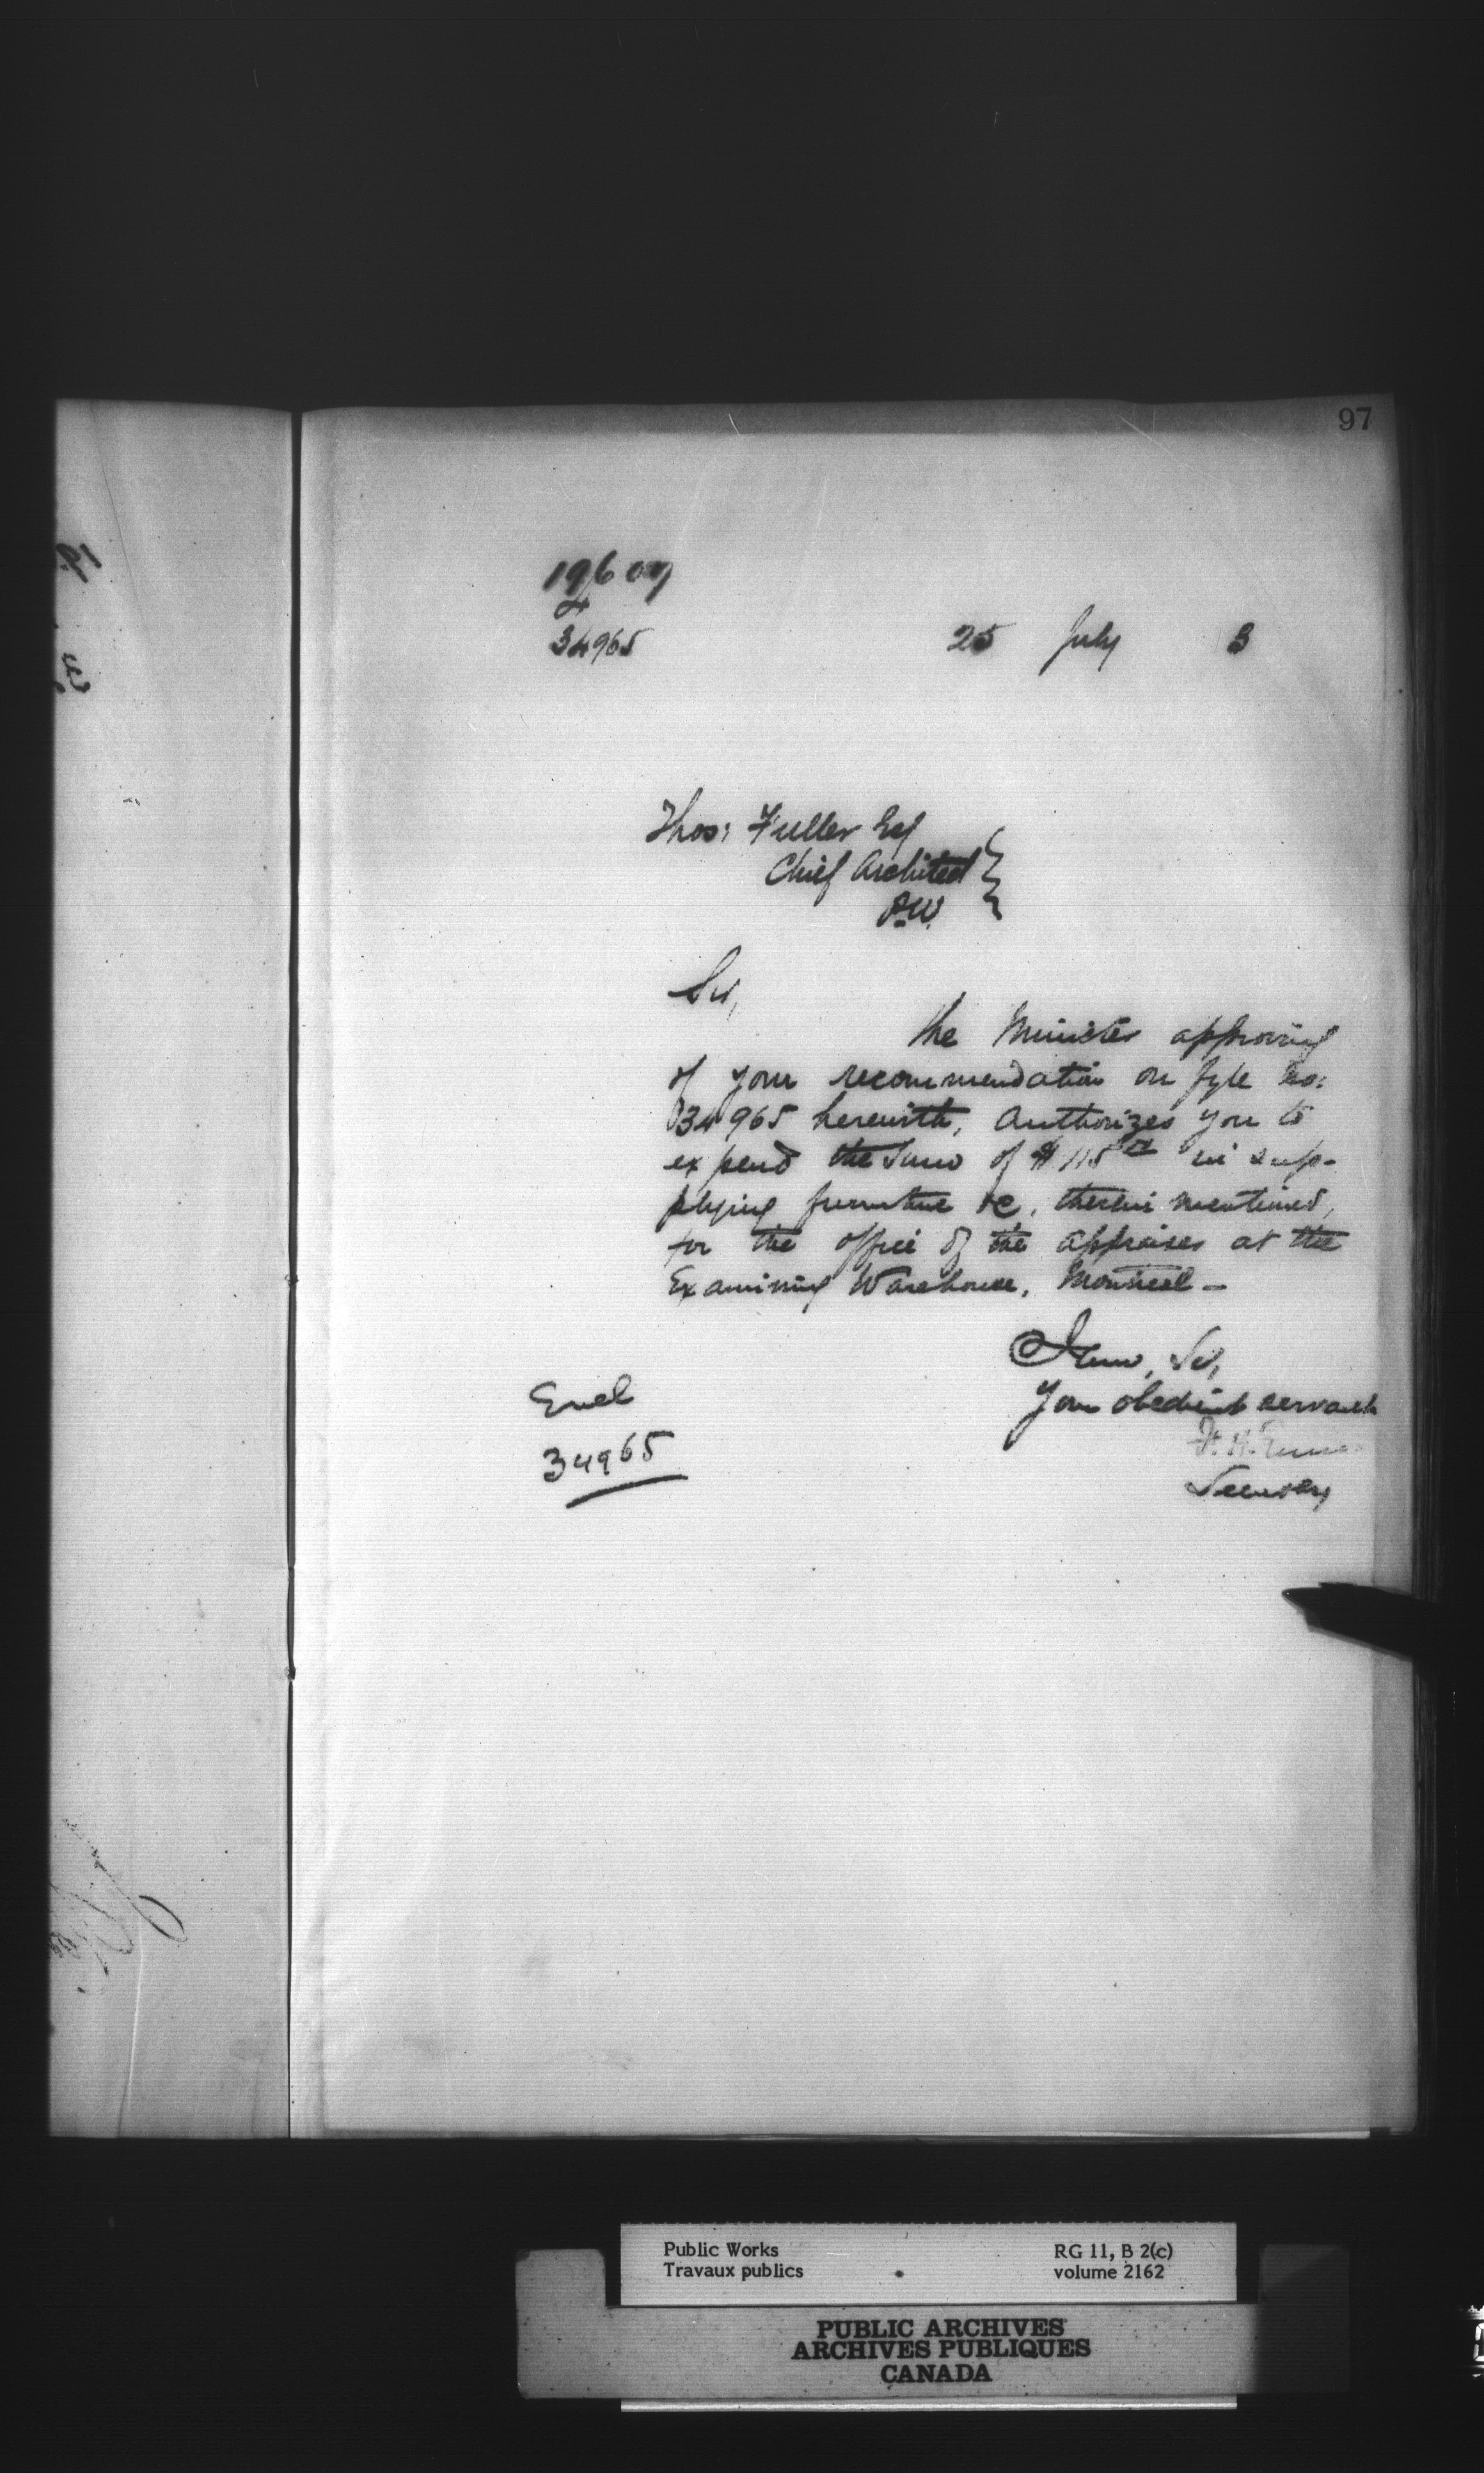 97
19607
34965
25 July 3
Thos: Fuller Esq
Chief Architect
P.W.
Sir,
The Minister approving
of your recommendation on fyle no:
34965 herewith, authorizes you to
expend the sum of $115 in sup-
plying furniture &c, therein mentioned,
for the office of the appraiser at the
Examining Warehouse, Montreal -
I am, Sir,
Your obedient servant
F. H. Ennis
Secretary
Encl
34965
Public Works
Travaux publics
RG 11, B 2(c)
volume 2162
PUBLIC ARCHIVES
ARCHIVES PUBLIQUES
CANADA